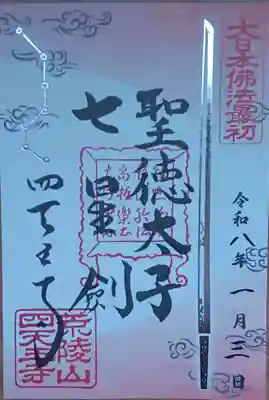 大日本佛法最初
令和八年一月三日
聖徳太子
七星剣
四天王寺
荒陵山
四天王寺